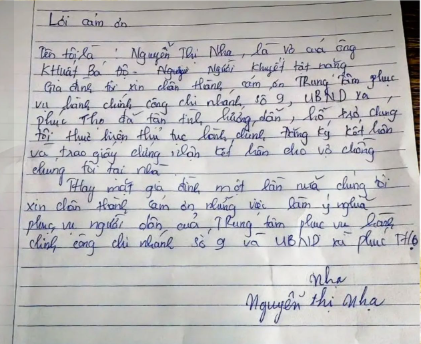 Lời cảm ơn
Tên tôi là: Nguyễn Thị Nhạ, là vợ của ông
Khuất Bá Độ. Người khuyết tật nặng
Gia đình tôi xin chân thành cảm ơn Trung tâm phục
vụ hành chính công chi nhánh số 9, UBND xã
phúc Thọ đã tận tình hướng dẫn, hỗ trợ, chúng
tôi thực hiện thủ tục hành chính đăng ký kết hôn
và trao giấy chứng nhận kết hôn cho vợ chồng
chúng tôi tại nhà.
Thay mặt gia đình một lần nữa chúng tôi
xin chân thành cảm ơn những việc làm ý nghĩa
phục vụ người dân của, Trung tâm phục vụ hành
chính công chi nhánh số 9 và UBND xã phúc Thọ
Nhạ
Nguyễn Thị Nhạ